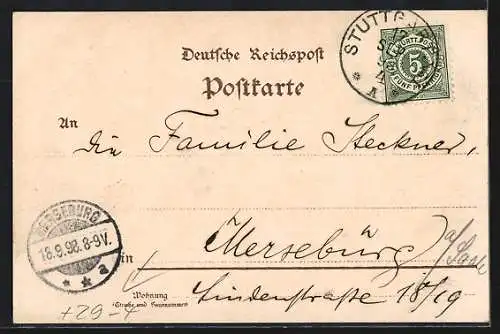 STUTTGART
K. WÜRTT. POST
5
FÜNF PFENNIG
Deutsche Reichspost
Postkarte
An
die Familie Steckner,
MERSEBURG
18.9.98.8-9V.
* * a
in
Merseburg a/Saale
Wohnung
(Straße und Hausnummer)
Lindenstraße 18/19
+29-4